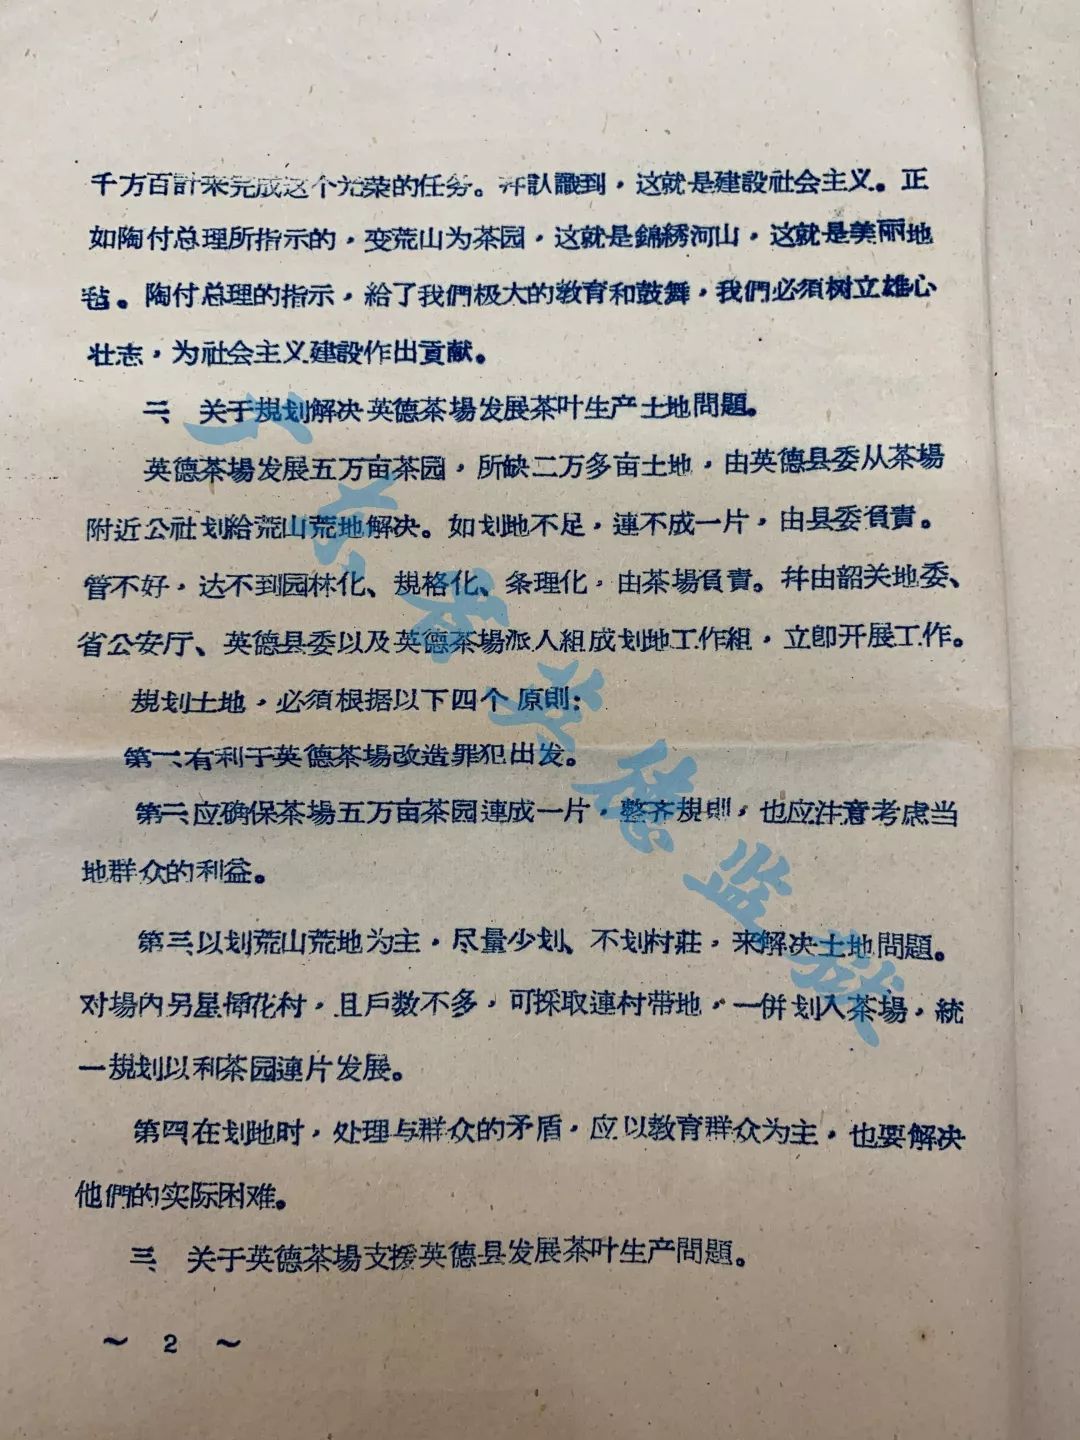 千方百計来完成这个光荣的任务。幷認識到，这就是建設社会主义。正
如陶付总理所指示的，变荒山为茶园，这就是錦綉河山，这就是美丽地
毡。陶付总理的指示，給了我們极大的教育和鼓舞，我們必須树立雄心
壮志，为社会主义建設作出貢献。
二、关于規划解决英德茶場发展茶叶生产土地問題。
英德茶場发展五万亩茶园，所缺二万多亩土地，由英德县委从茶場
附近公社划給荒山荒地解决。如划地不足，連不成一片，由县委負責。
管不好，达不到园林化、規格化、条理化，由茶場負責。幷由韶关地委、
省公安厅、英德县委以及英德茶場派人組成划地工作組，立卽开展工作。
規划土地，必須根据以下四个原則：
第一、有利于英德茶場改造罪犯出发。
第二、应确保茶場五万亩茶园連成一片，整齐規則，也应注意考虑当
地群众的利益。
第三、以划荒山荒地为主，尽量少划、不划村莊，来解决土地問題。
对場內另星揷花村，且戶数不多，可採取連村带地，一併划入茶場，統
一規划以利茶园連片发展。
第四在划地时，处理与群众的矛盾，应以教育群众为主，也要解决
他們的实际困难。
三、关于英德茶場支援英德县发展茶叶生产問題。
～ 2 ～
广东省英德监狱